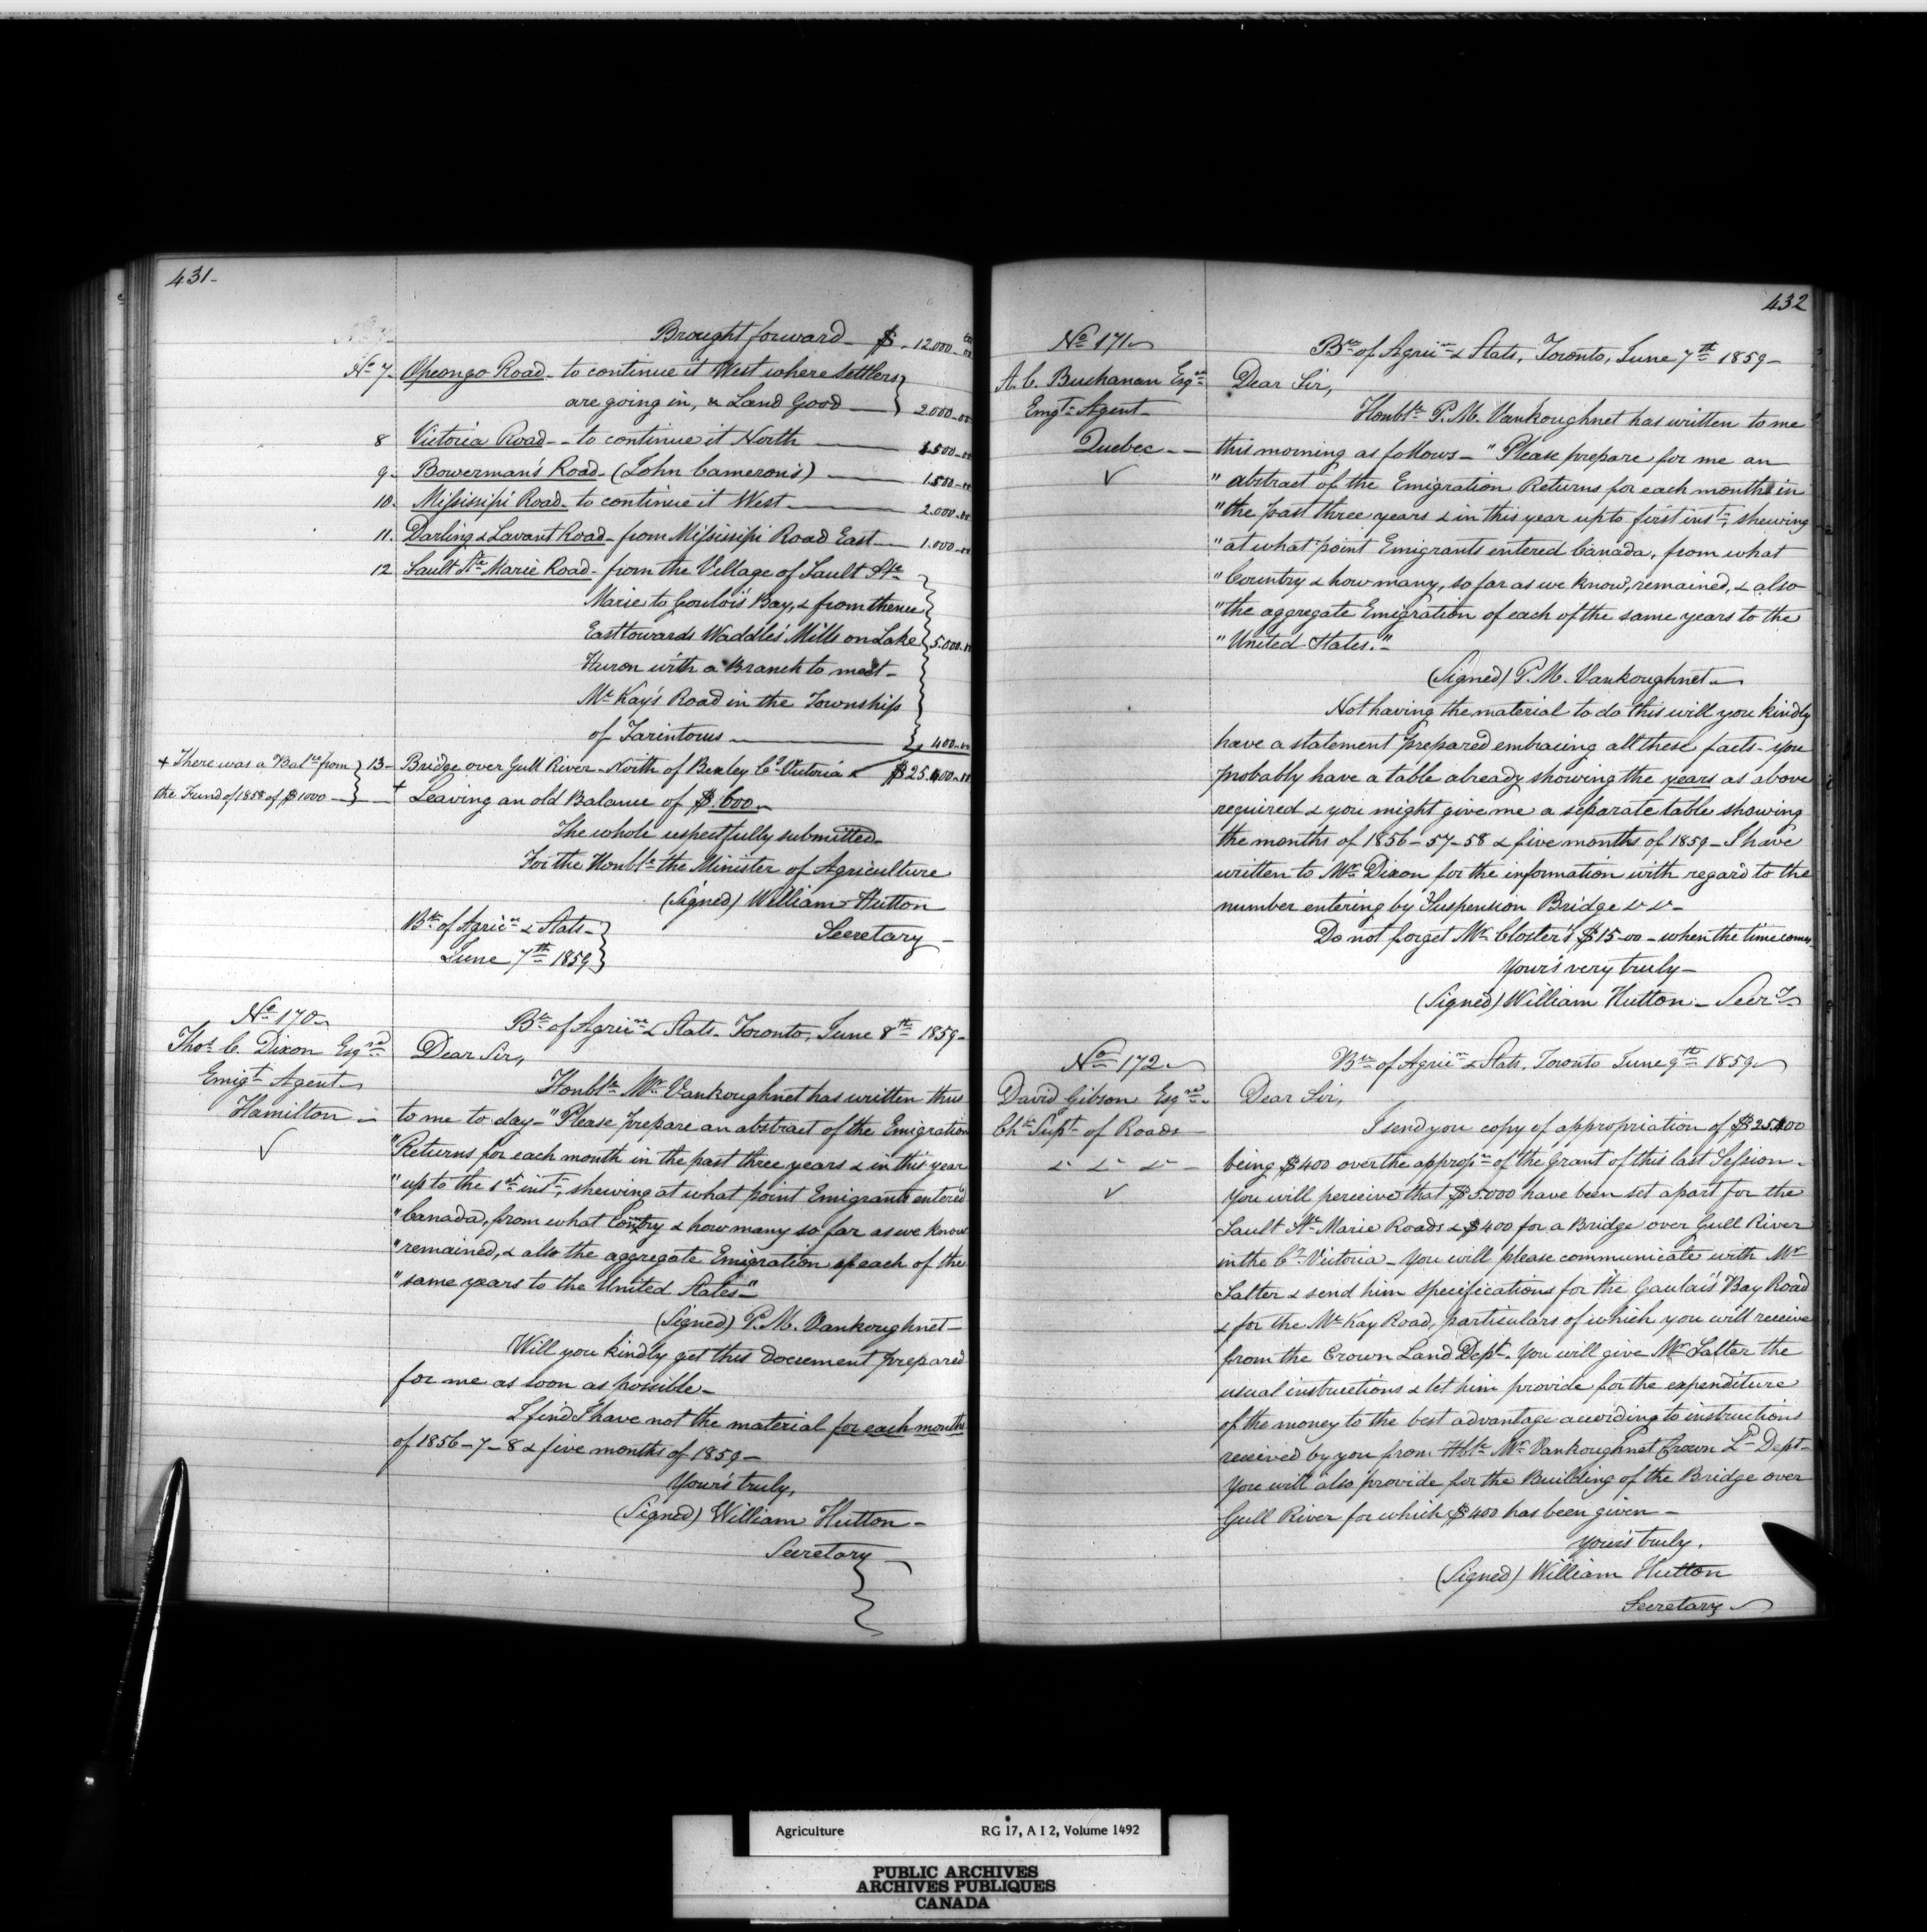 431-
Brought forward - $ - 12.000-00
No 7- Opeongo Road - to continue it West where Settlers
are going in, & Land Good - 2.000-00
8 Victoria Road - - to continue it North - 1.500-00
9- Bowerman's Road - (John Cameron's) - 1.500-00
10- Mississipi Road - to continue it West - 2.000-00
11. Darling & Lavant Road - from Mississipi Road East - 1.000-00
12 Sault Ste Marie Road - from the Village of Sault Ste
Marie to Goulois Bay, & from thence
East towards Waddle's Mills on Lake 5.000-00
Huron with a Branch to meet -
McKay's Road in the Township
of Tarintorus - 400-00
+ There was a Balce from
the Fund of 1858 of $1000 -
13- Bridge over Gull River - North of Bexley Co Victoria $25.400-00
+ Leaving an old Balance of $600 -
The whole respectfully submitted -
For the Honble the Minister of Agriculture
(Signed) William Hutton
Secretary -
Bu of Agricre & Stats -
June 7th 1859
No 170
Thos C. Dixon Esqre
Emigt Agent
Hamilton -
Bu of Agricre & Stats - Toronto, June 8th 1859 -
Dear Sir,
Honble Mr Vankoughnet has written thus
to me to day - "Please prepare an abstract of the Emigration
"Returns for each month in the past three years & in this year
"up to the 1st inst, shewing at what point Emigrants entered
"Canada, from what Country & how many so far as we know
"remained, & also the aggregate Emigration of each of the
"same years to the United States -"
(Signed) P. M. Vankoughnet -
Will you kindly get this document prepared
for me as soon as possible -
I find I have not the material for each month
of 1856-7-8 & five months of 1859 -
Your's truly,
(Signed) William Hutton -
Secretary -
432
No 171
A. C. Buchanan Esqre
Emgt Agent -
Quebec - -
Bu of Agricre & Stats, Toronto, June 7th 1859 -
Dear Sir,
Honble P. M. Vankoughnet has written to me
this morning as follows - "Please prepare for me an
"abstract of the Emigration Returns for each month in
"the past three years & in this year up to first inst, shewing
"at what point Emigrants entered Canada, from what
"Country & how many, so far as we know, remained, & also
"the aggregate Emigration of each of the same years to the
"United States." -
(Signed) P. M. Vankoughnet -
Not having the material to do this will you kindly
have a statement prepared embracing all these facts - you
probably have a table already showing the years as above
required & you might give me a separate table showing
the months of 1856-57-58 & five months of 1859 - I have
written to Mr Dixon for the information with regard to the
number entering by Suspension Bridge
Do not forget Mr Closter's $15-00 - when the time comes -
Your's very truly -
(Signed) William Hutton - Secry
No 172
David Gibson Esqre
Chf Supt of Roads
Bu of Agricre & Stats, Toronto June 9th 1859
Dear Sir,
I send you copy of appropriation of $25.400
being $400 over the appropn of the Grant of this last Session -
You will perceive that $5.000 have been set apart for the
Sault Ste Marie Roads & $400 for a Bridge over Gull River
in the Co Victoria - You will please communicate with Mr
Salter & send him specifications for the Gaulais Bay Road
& for the McKay Road, particulars of which you will receive
from the Crown Land Dept. You will give Mr Salter the
usual instructions & let him provide for the expenditure
of the money to the best advantage according to instructions
received by you from Hble Mr Vankoughnet Crown Ld Dept -
You will also provide for the Building of the Bridge over
Gull River for which $400 has been given -
Your's truly,
(Signed) William Hutton
Secretary
Agriculture RG 17, A I 2, Volume 1492
PUBLIC ARCHIVES
ARCHIVES PUBLIQUES
CANADA